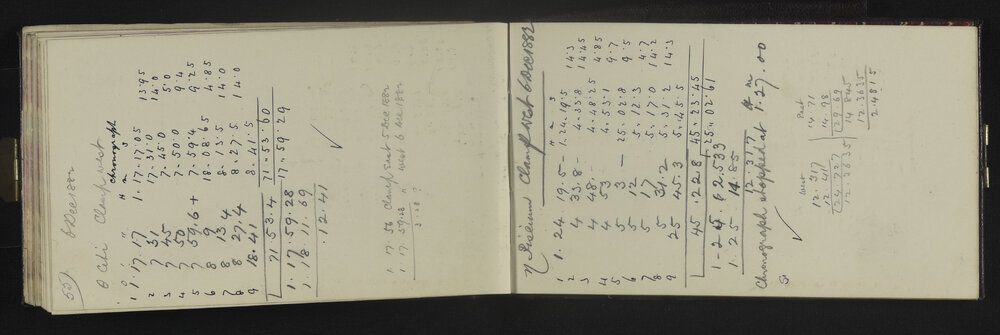 55
6 Dec 1882
θ Ceti Clamp West
chronograph
h m s
1 1.17.17 1.17.17.05 13.95
2 7 31 17.31.0 14.0
3 7 45 7.45.0 5.0
4 7 50 7.50.0 9.4
5 7 59.6 + 7.59.4 9.25
6 8 9 18.08.65 4.85
7 8 13.4 8.13.5 14.0
8 8 27.4 8.27.5 14.0
9 18.41 8.41.5
71 53.4 71.53.60
1.17.59.28 17.59.29
1.18.11.69
.12.41
1.17.56 Clamp East 5 Dec 1882
1.17.59.28 " West 6 Dec 1882
3.28 ?
η Piscium Clamp West 6 Dec 1882
h m s
1. 1.24.19.5 – 1.24.19.5 14.3
2 4 33.8 – 4.33.8 14.45
3 4 48. – 4.48.25 4.85
4 4 53 4.53.1 9.7
5 5 3 – 25.02.8 9.5
6 5 12 5.12.3 4.7
7 5 17 5.17.0 14.2
8 5 31.2 5.31.2 14.3
9 25 45.3 5.45.5
45.22.8 45.23.45
1-24.62.533 25.02.61
1.25.14.85
12.317
Chronograph stopped at 1.27.00
h m
West
12.317
12.417
24.727
12.3635
East
14.71
14.98
29.69
14.845
12.3635
2.4815